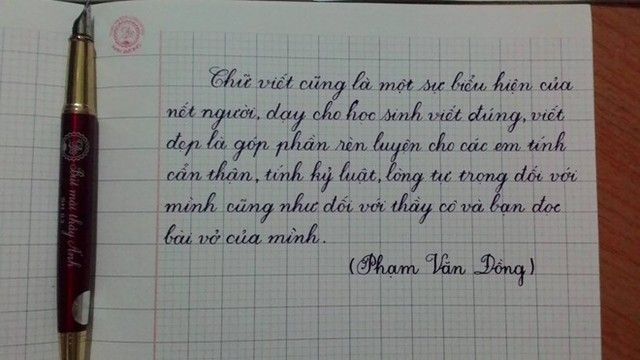 Chữ viết cũng là một sự biểu hiện của
nết người, dạy cho học sinh viết đúng, viết
đẹp là góp phần rèn luyện cho các em tính
cẩn thận, tính kỷ luật, lòng tự trọng đối với
mình cũng như đối với thầy cô và bạn đọc
bài vở của mình.
(Phạm Văn Đồng)
Bút mài thầy Ánh